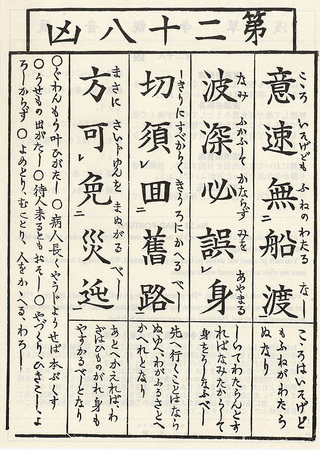 第二十八凶
こころ いそげども ふねのわたる なし
意速無二船渡
なみ ふかふして かならず みを あやまる
波深必誤レ身
きりにすべからく きうろにかへる べし
切須レ囬二舊路
まさに さいじゆんを まぬがる べし
方可レ免二災迍
こゝろはいそげど
もふねがわたら
ぬなり
しいてわたらんとす
ればなみたかうして
身をうしなふべし
先へ行くことはなら
ぬゆへ、わがふるさとへ
かへれとなり
あとへかえれば、わ
ざはひものがれ身も
やすかるべしとなり
○ぐわんもう叶ひがたし ○病人長くやうじようせば本ぷくす
○うせもの出がたし ○待人来るともおそし ○やづくり、ひきこし、よ
ろしからず ○よめとり、むことり、人をかゝへる、わろし